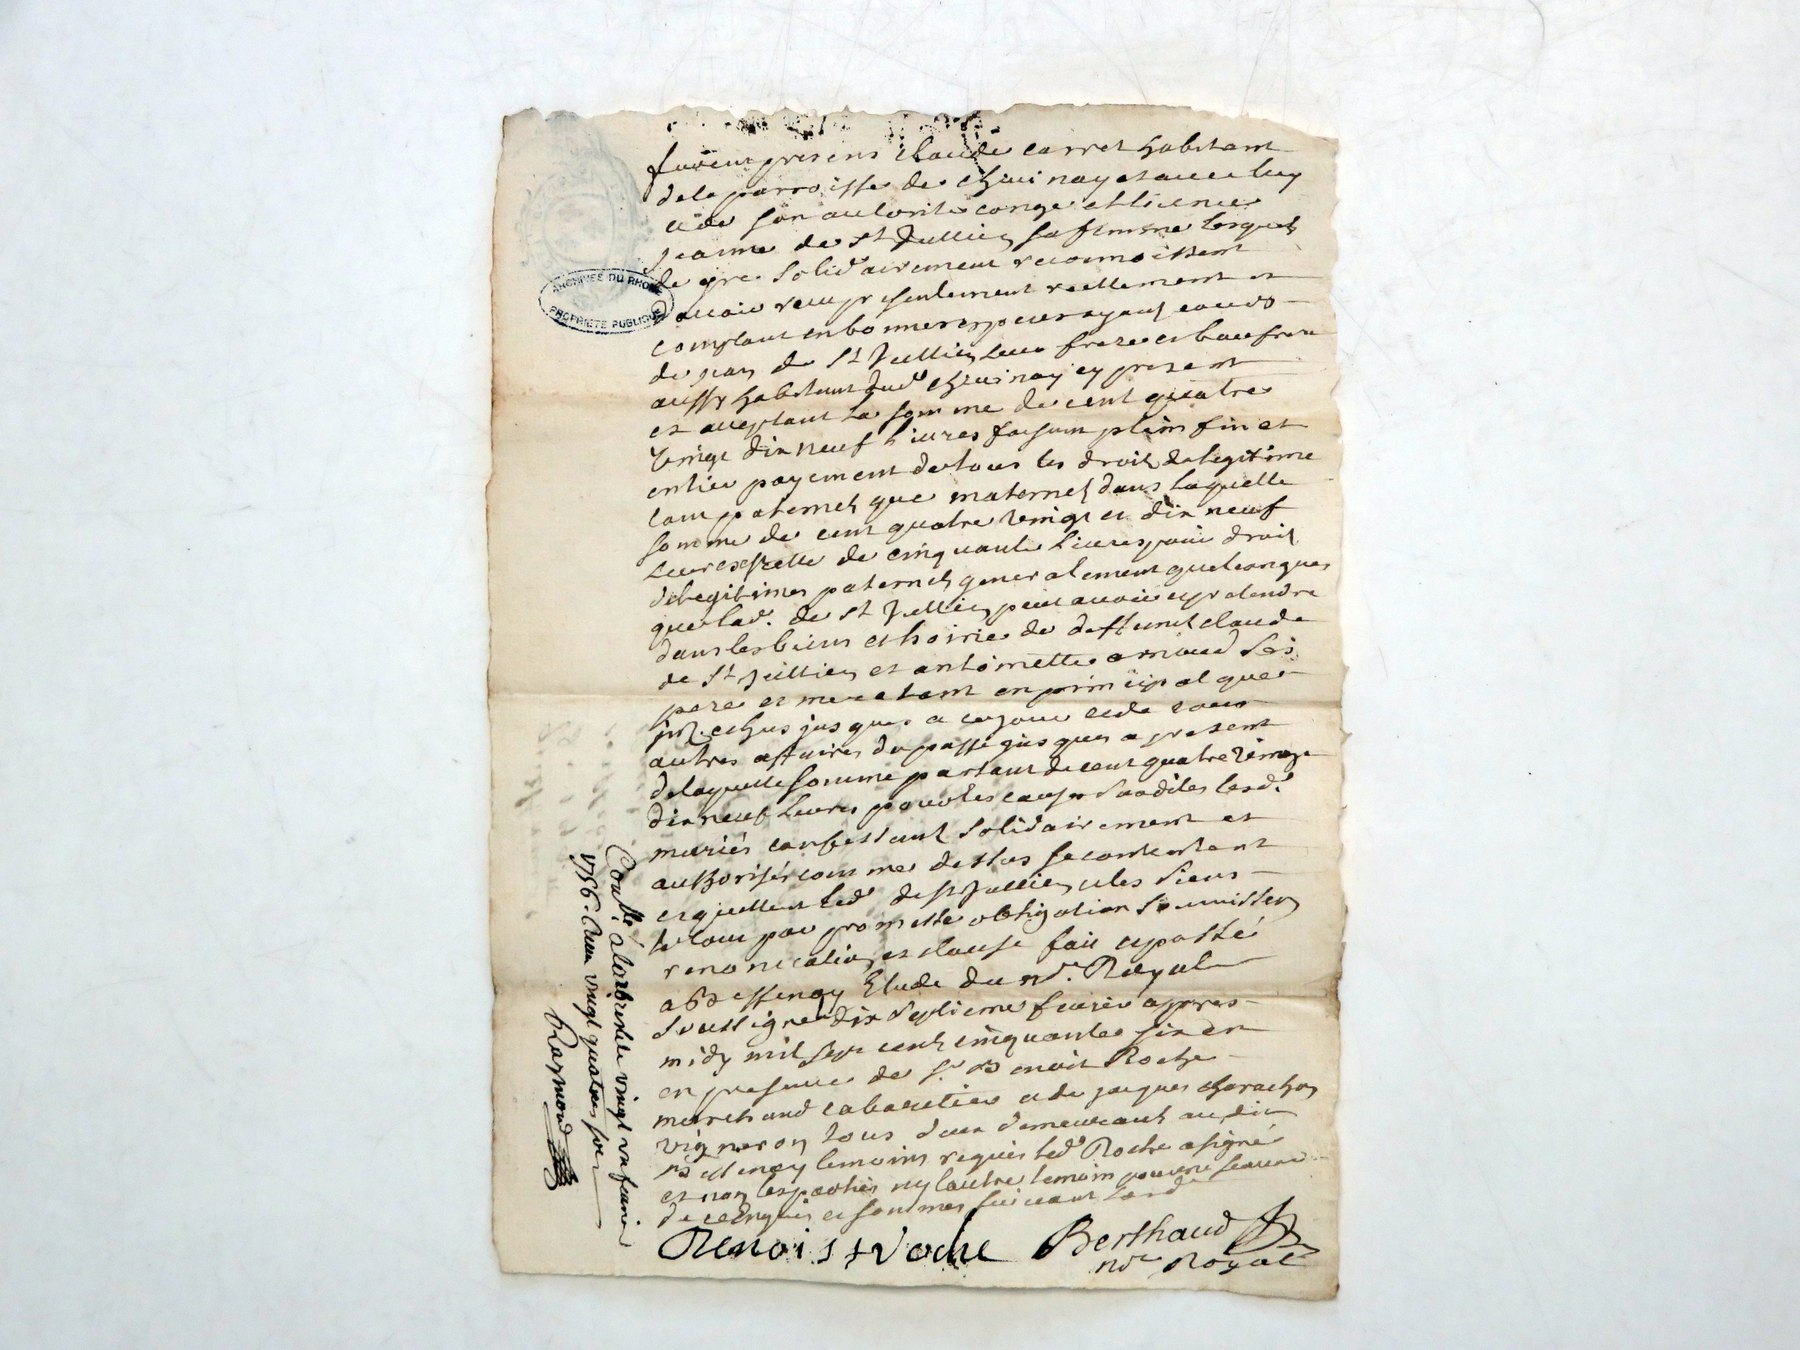 furent presens claude carret habitant
de la parroisse de chevinay et avec luy
et de son autorité congé et licence
jeanne de st Jullien sa femme lesquels
de gre solidairement reconnoissent
avoir receu presentement reellement et
comptant en bonnes especes ayant cours
de jean de st Jullien leur frere et beaufrere
aussy habitant dud chevinay cy present
et acceptant la somme de cent quatre
vingt dix neuf livres faisant plein fin et
entier payement de tous les droits de legitime
tant paternels que maternels dans laquelle
somme de cent quatre vingt et dix neuf
livres est celle de cinquante livres pour droit
de legitimes paternels generalement quelconques
que lad. de st Jullien peut avoir et pretendre
dans les biens et hoirie de deffunts claude
de st Jullien et antoinette arnaud ses
pere et mere tant en principal que
echus jusques a ce jour et de tous
autres affaires du passé jusques a present
de laquelle somme partant de cent quatre vingt
dix neuf livres pour les causes susdites lesd.
mariés confessants solidairement et
authorisés comme dessus se contentent
et quittent led de st Jullien et les siens
le tout par promesse obligation soumission
renonciation et clause fait et passé
a Bessenay Etude du nore Royal
soussigné dix septieme fevrier appres
midy mil sept cents cinquante six en
en presence de sr Benoit Roche
marchand cabaretier et de jacques charachon
vigneron tous deux demeurant audit
Bessenay temoins requis led Roche a signé
et non les parties ny l'autre temoin pour ne scavoir
de ce Enquis et sommes suivant lord
Benoist Roche Berthaud
nore Royal
Conllé à Larbresle le vingt un fevrier
1756. Reçu vingt quatre sols
Raymond
ARCHIVES DU RHONE
PROPRIÉTÉ PUBLIQUE